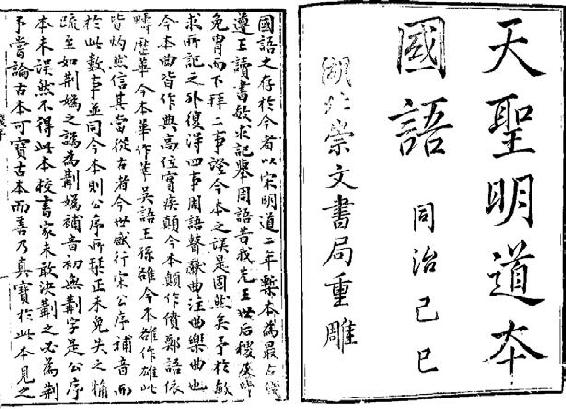 天聖明道本
國語 同治己巳
湖北崇文書局重雕
國語之存於今者以宋明道二年槧本為最古錢
遵王讀書敏求記舉周語昔我先王世后稷
免胄而下拜二事證今本之誤是固然矣予於敏
求所記之外復得四事周語瞽獻曲注曲樂曲也
今本曲皆作典高位寔疾顛今本顛作僨鄭語依
疇歷華今本華作莘吳語王孫雒今本雒作雄此
皆灼然信其當從古者今世盛行宋公序補音而
於此數事並同今本則公序所槧正未免失之觕
疏至如荊媯之譌為媯補音初無字是公序
本未誤然不得此本校書家未敢決之必為荊
予嘗論古本可寶古本而善乃真寶於此本見之